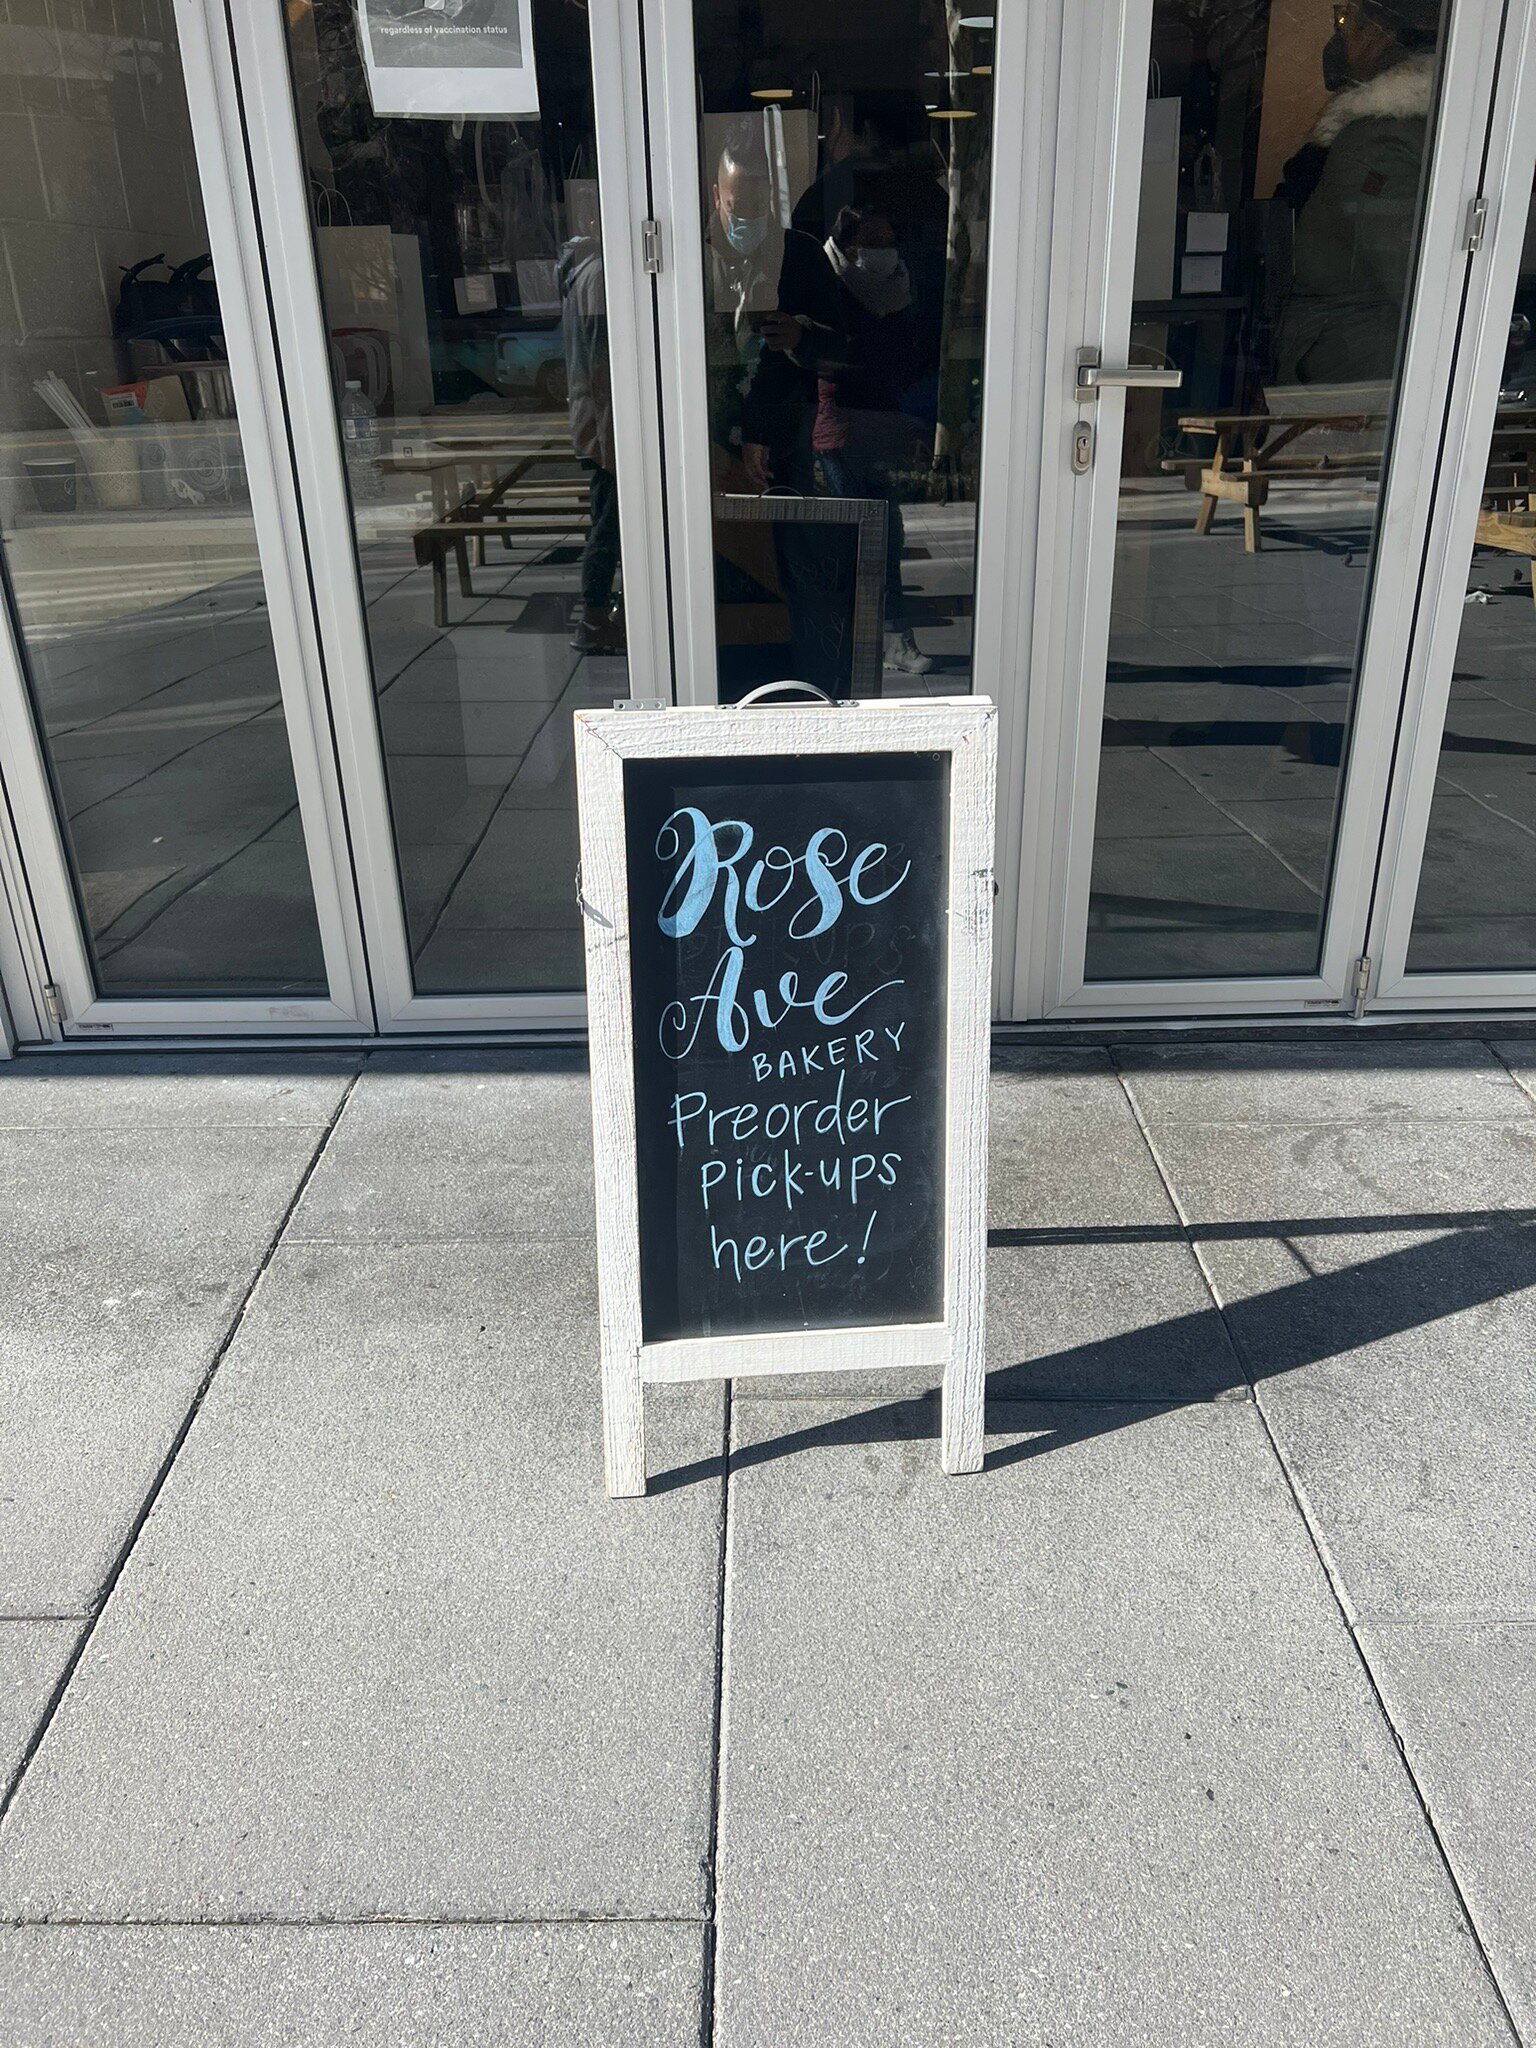 regardless of vaccination status
Rose
Ave
BAKERY
Preorder
pick-ups
here!